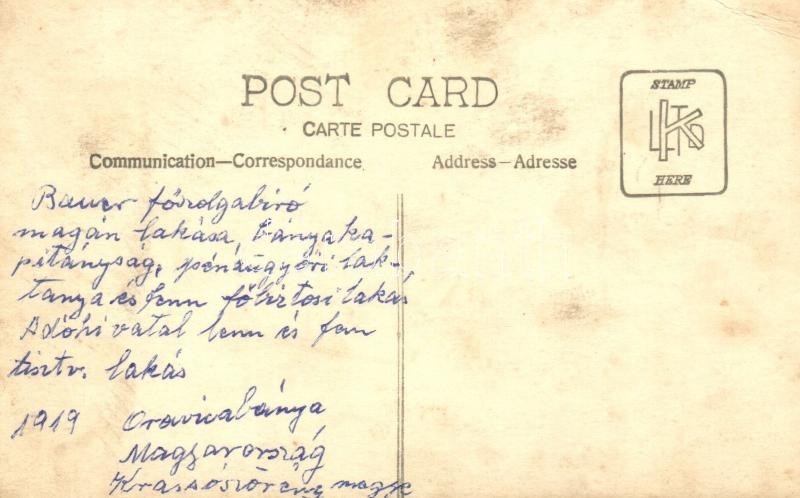 POST CARD
CARTE POSTALE
Communication—Correspondance.
Address—Adresse
STAMP
HERE
Bauer főszolgabíró
magán lakása, bányaka-
pitányság, pénzügyőri lak-
tanya és fenn főbiztosi lakás
Adóhivatal lenn és fen
tisztv. lakás
1919 Oravicabánya
Magyarország
Krassószörény megye